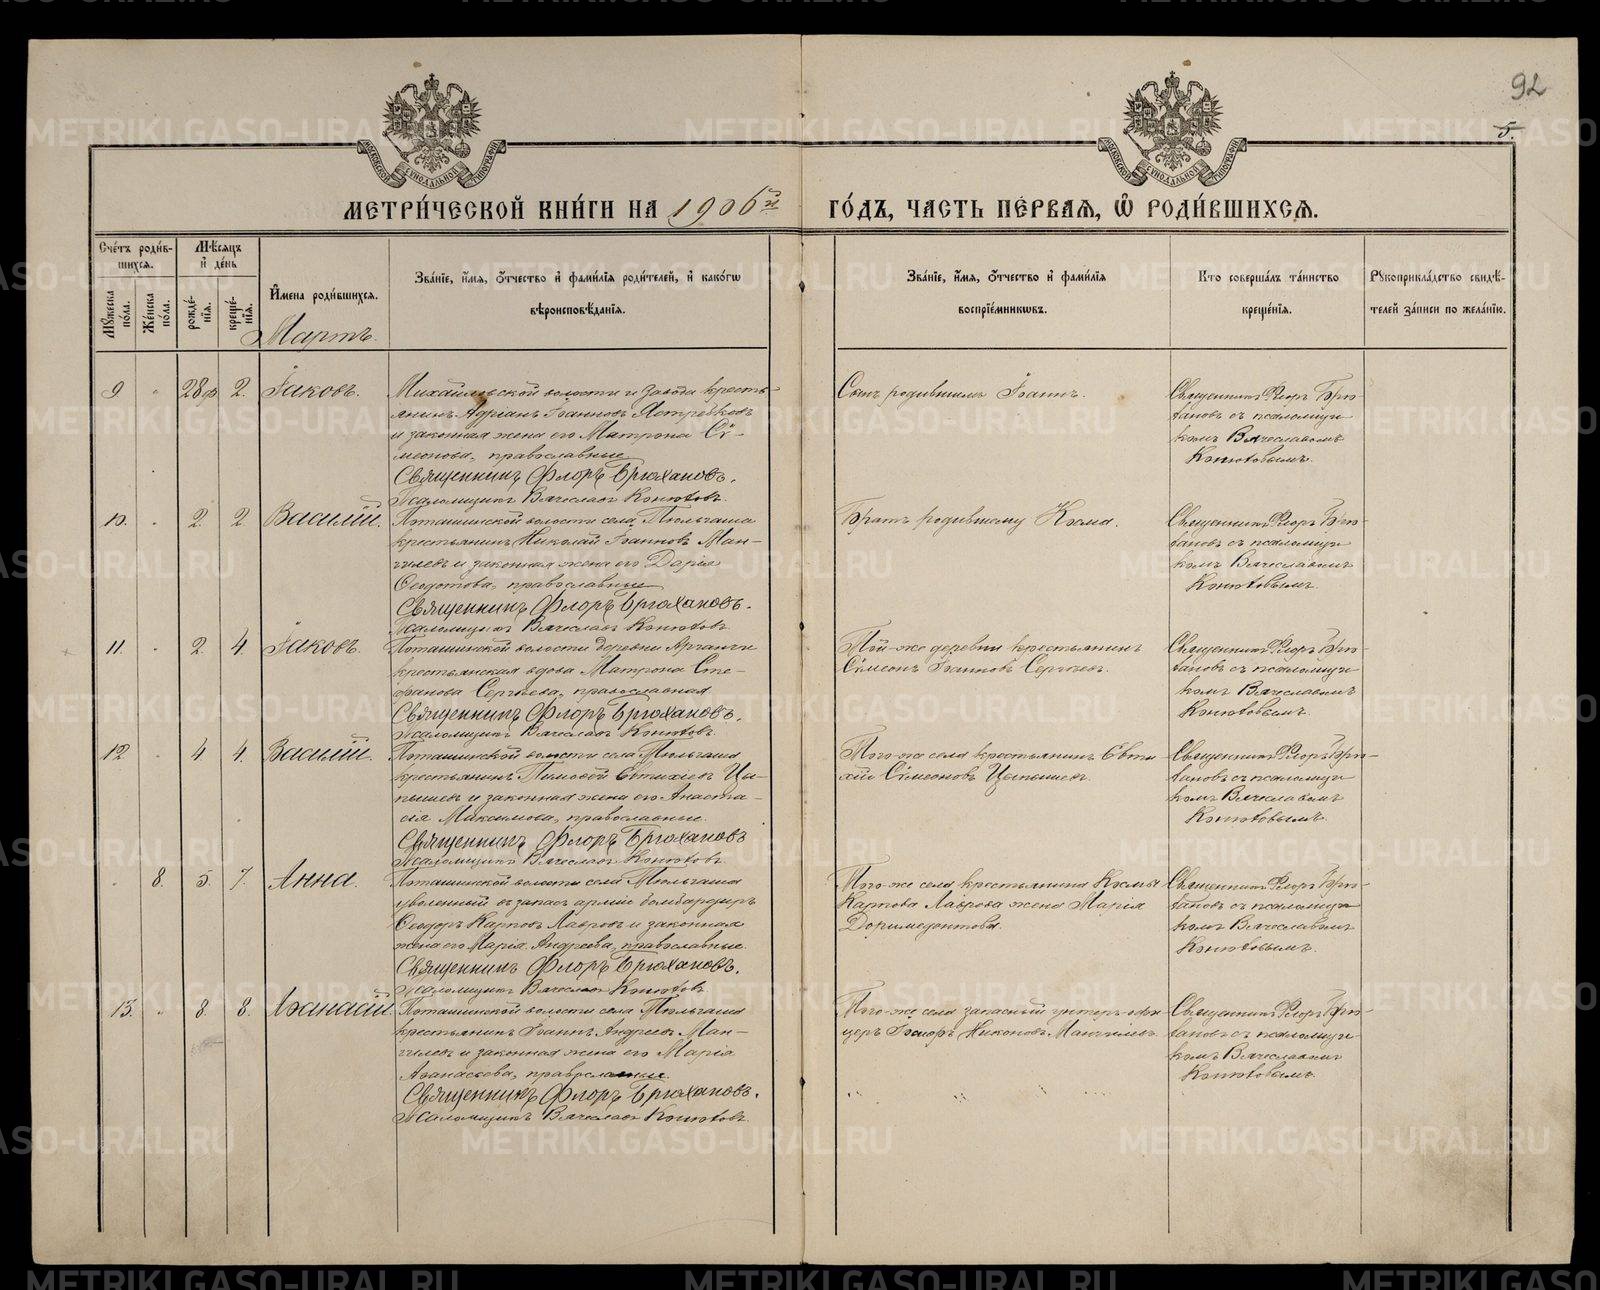 92
5.
МЕТРИ́ЧЕСКОЙ КНИ́ГИ НА 1906й ГО́ДЪ, ЧАСТЬ ПЕ́РВАЯ, Ѽ РОДИ́ВШИХСЯ.
Сче́тъ роди́вшихся.
Мѣ́сяцъ и҆ де́нь
Му́жеска по́ла.
Же́нска по́ла.
рожде́нїя.
креще́нїя.
И҆мена роди́вшихся.
Мартъ.
Зва́нїе, и҆́мя, ѻ҆́тчество и҆ фами́лїя роди́телей, и҆ како́гѡ вѣроисповѣ́данїя.
Зва́нїе, и҆́мя, ѻ҆́тчество и҆ фами́лїя воспрїе́мникѡвъ.
Кто соверша́лъ та́инство креще́нїя.
Рꙋкоприкла́дство свидѣ́телей за́писи по жела́нїю.
9 " 28ф 2. Іаковъ.
Михайловской волости и завода кресть-
янинъ Адріанъ Іоанновъ Ястребковъ
и законная жена его Матрона Си-
меонова, православные
Священникъ Флоръ Брюхановъ.
Псаломщикъ Вячеславъ Конюховъ.
Сынъ родившимъ Іоаннъ.
Священникъ Флоръ Брю-
хановъ съ псаломщи-
комъ Вячеславомъ
Конюховымъ.
10. " 2. 2 Василій.
Поташинской волости села Тюльгаша
крестьянинъ Николай Іоанновъ Ман-
гилевъ и законная жена его Дарія
Ѳеодотова, православные
Священникъ Флоръ Брюхановъ.
Псаломщикъ Вячеславъ Конюховъ.
Братъ родившему Козма.
Священникъ Флоръ Брю-
хановъ съ псаломщи-
комъ Вячеславомъ
Конюховымъ
11. " 2. 4. Іаковъ.
Поташинской волости деревни Артанги
крестьянская вдова Матрона Сте-
фанова Сергѣева, православная
Священникъ Флоръ Брюхановъ.
Псаломщикъ Вячеславъ Конюховъ.
Той-же деревни крестьянинъ
Симеонъ Іоанновъ Сергѣевъ.
Священникъ Флоръ Брю-
хановъ съ псаломщи-
комъ Вячеславомъ
Конюховымъ.
12 " 4 4. Василій.
Поташинской волости села Тюльгаша
крестьянинъ Тимоѳей Евтихіевъ Цы-
пышевъ и законная жена его Анаста-
сія Максимова, православные.
Священникъ Флоръ Брюхановъ
Псаломщикъ Вячеславъ Конюховъ.
Того-же села крестьянинъ Евти-
хій Симеоновъ Цыпышевъ.
Священникъ Флоръ Брю-
хановъ съ псаломщи-
комъ Вячеславомъ
Конюховымъ.
" 8. 5. 7. Анна.
Поташинской волости села Тюльгаша
уволенный въ запасъ арміи бомбардиръ
Ѳеодоръ Карповъ Лавровъ и законная
жена его Марія Андреева, православные.
Священникъ Флоръ Брюхановъ.
Псаломщикъ Вячеславъ Конюховъ
Того-же села крестьянина Козмы
Карпова Лаврова жена Марія
Доримедонтова.
Священникъ Флоръ Брю-
хановъ съ псаломщи-
комъ Вячеславомъ
Конюховымъ.
13. " 8. 8. Аѳанасій.
Поташинской волости села Тюльгаша
крестьянинъ Іоаннъ Андреевъ Ман-
гилевъ и законная жена его Марія
Аѳанасьева, православные.
Священникъ Флоръ Брюхановъ.
Псаломщикъ Вячеславъ Конюховъ.
Того-же села запасный унтеръ-офи-
церъ Никоновъ Мангилевъ.
Священникъ Флоръ Брю-
хановъ съ псаломщи-
комъ Вячеславомъ
Конюховымъ.
METRIKI.GASO-URAL.RU